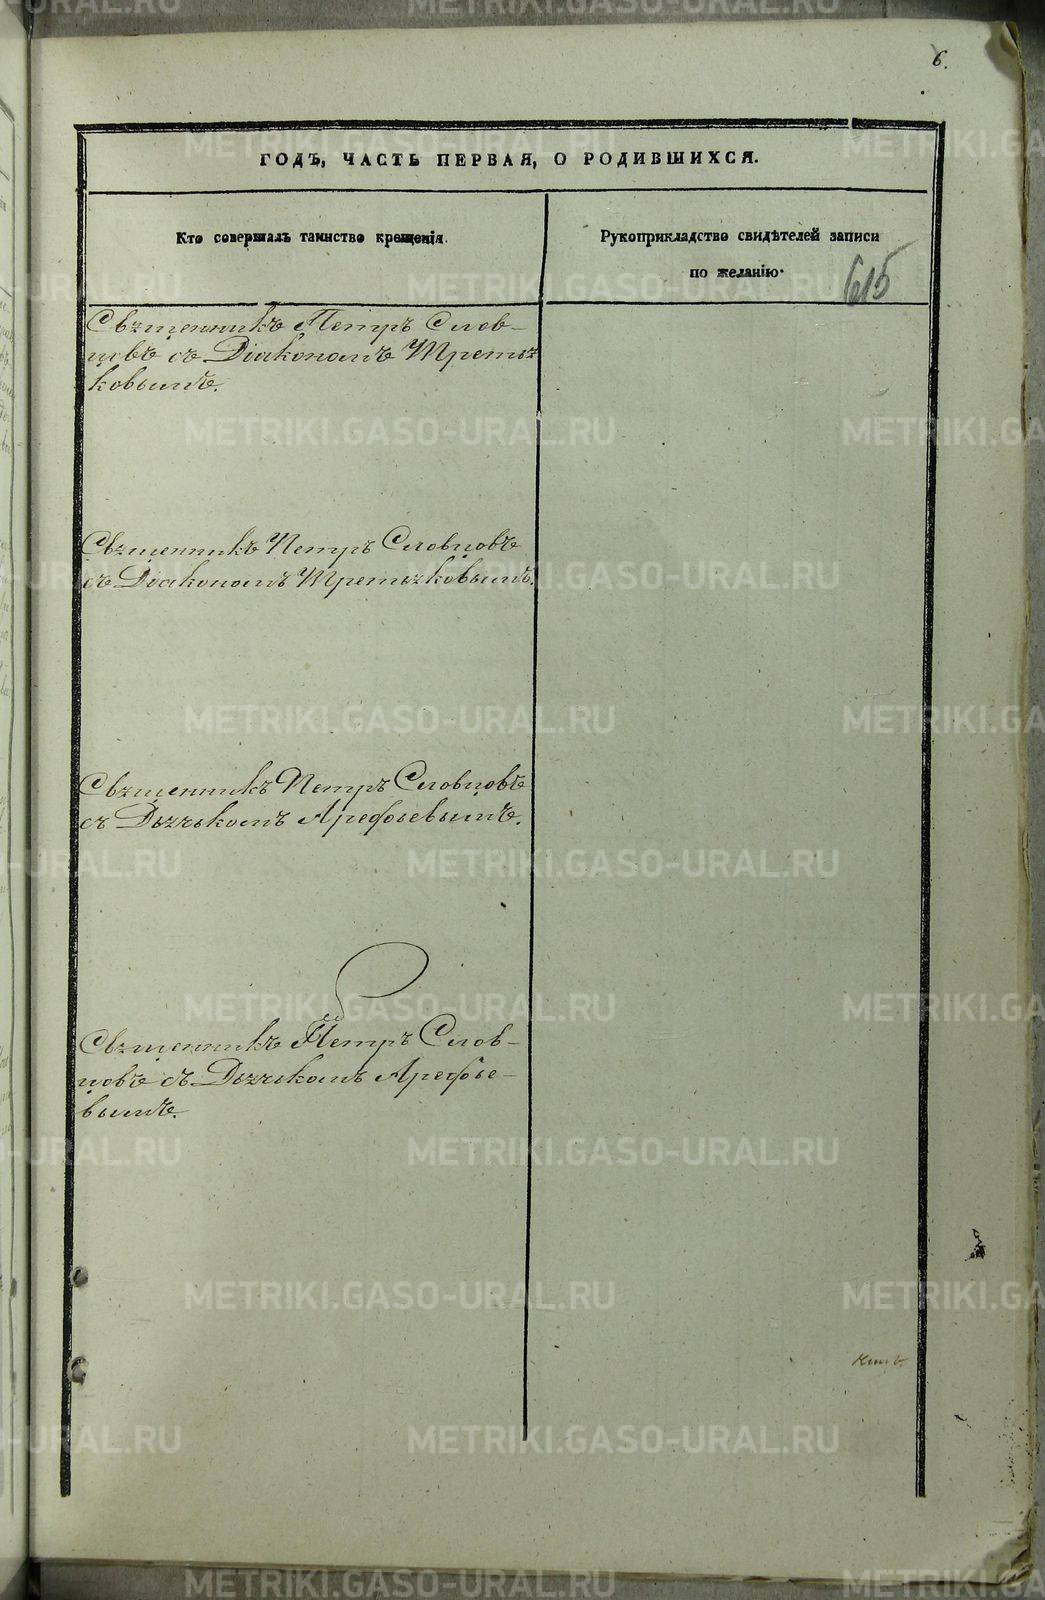 6.
ГОДЪ, ЧАСТЬ ПЕРВАЯ, О РОДИВШИХСЯ.
Кто совершалъ таинство крещенія.
Рукоприкладство свидѣтелей записи
по желанію.
615
Священникъ Петръ Слов-
цовъ съ Діакономъ Третья-
ковымъ.
Священникъ Петръ Словцовъ
съ Діакономъ Третьяковымъ.
Священникъ Петръ Словцовъ
съ Дьячкомъ Арефьевымъ.
Священникъ Петръ Слов-
цовъ съ Дьячкомъ Арефье-
вымъ.
METRIKI.GASO-URAL.RU